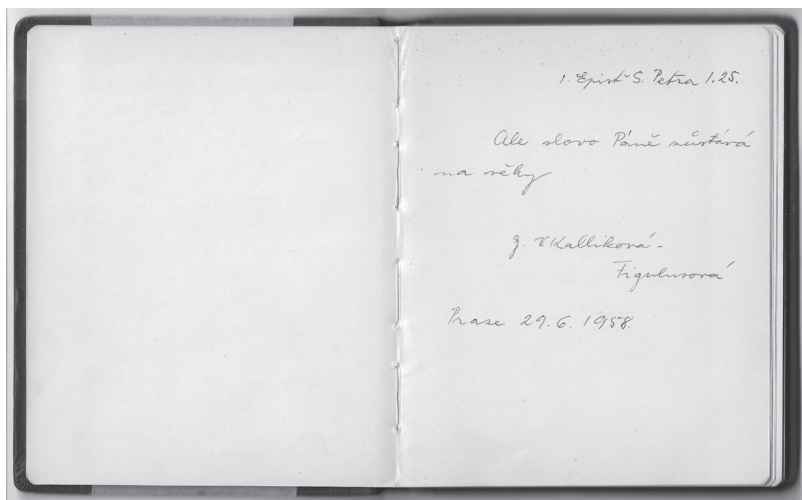 1. Epišt. S. Petra 1.25.
Ale slovo Páně zůstává
na věky
V. Kalliková-
Figulusová
29.6.1958.